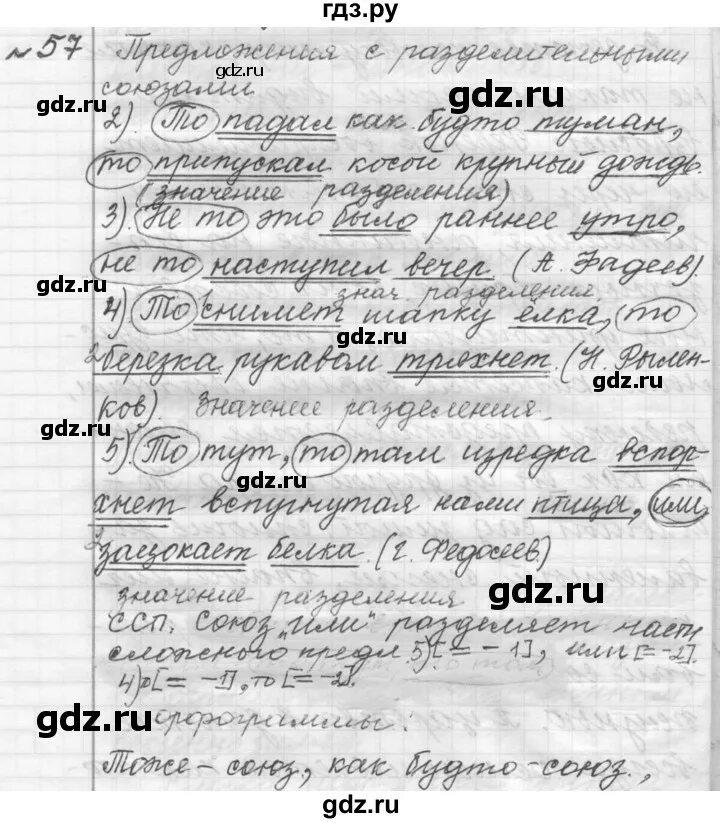 гдз.ру
№57 Предложения с разделительными
союзами.
2). То падал как будто туман,
то припускал косой крупный дождь.
(значение разделения)
3). Не то это было раннее утро,
не то наступил вечер. (А. Фадеев).
знач. разделения.
4) То снимет шапку ёлка, то
березка рукавом тряхнет. (Н. Рылен-
ков). Значение разделения.
5). То тут, то там изредка вспор-
хнет вспугнутая нами птица, или
зацокает белка. (Г. Федосеев.)
значение разделения
ССП. Союз „или" разделяет части
сложного предл. 5) [= - 1], или [= -2].
4) [= -1], то [= -2].
Орфограммы:
Тоже - союз, как будто - союз.,
gdz.ru
gdz.ru
gdz.ru
gdz.ru
gdz.ru
gdz.ru
gdz.ru
gdz.ru
gdz.ru
gdz.ru
gdz.ru
gdz.ru
gdz.ru